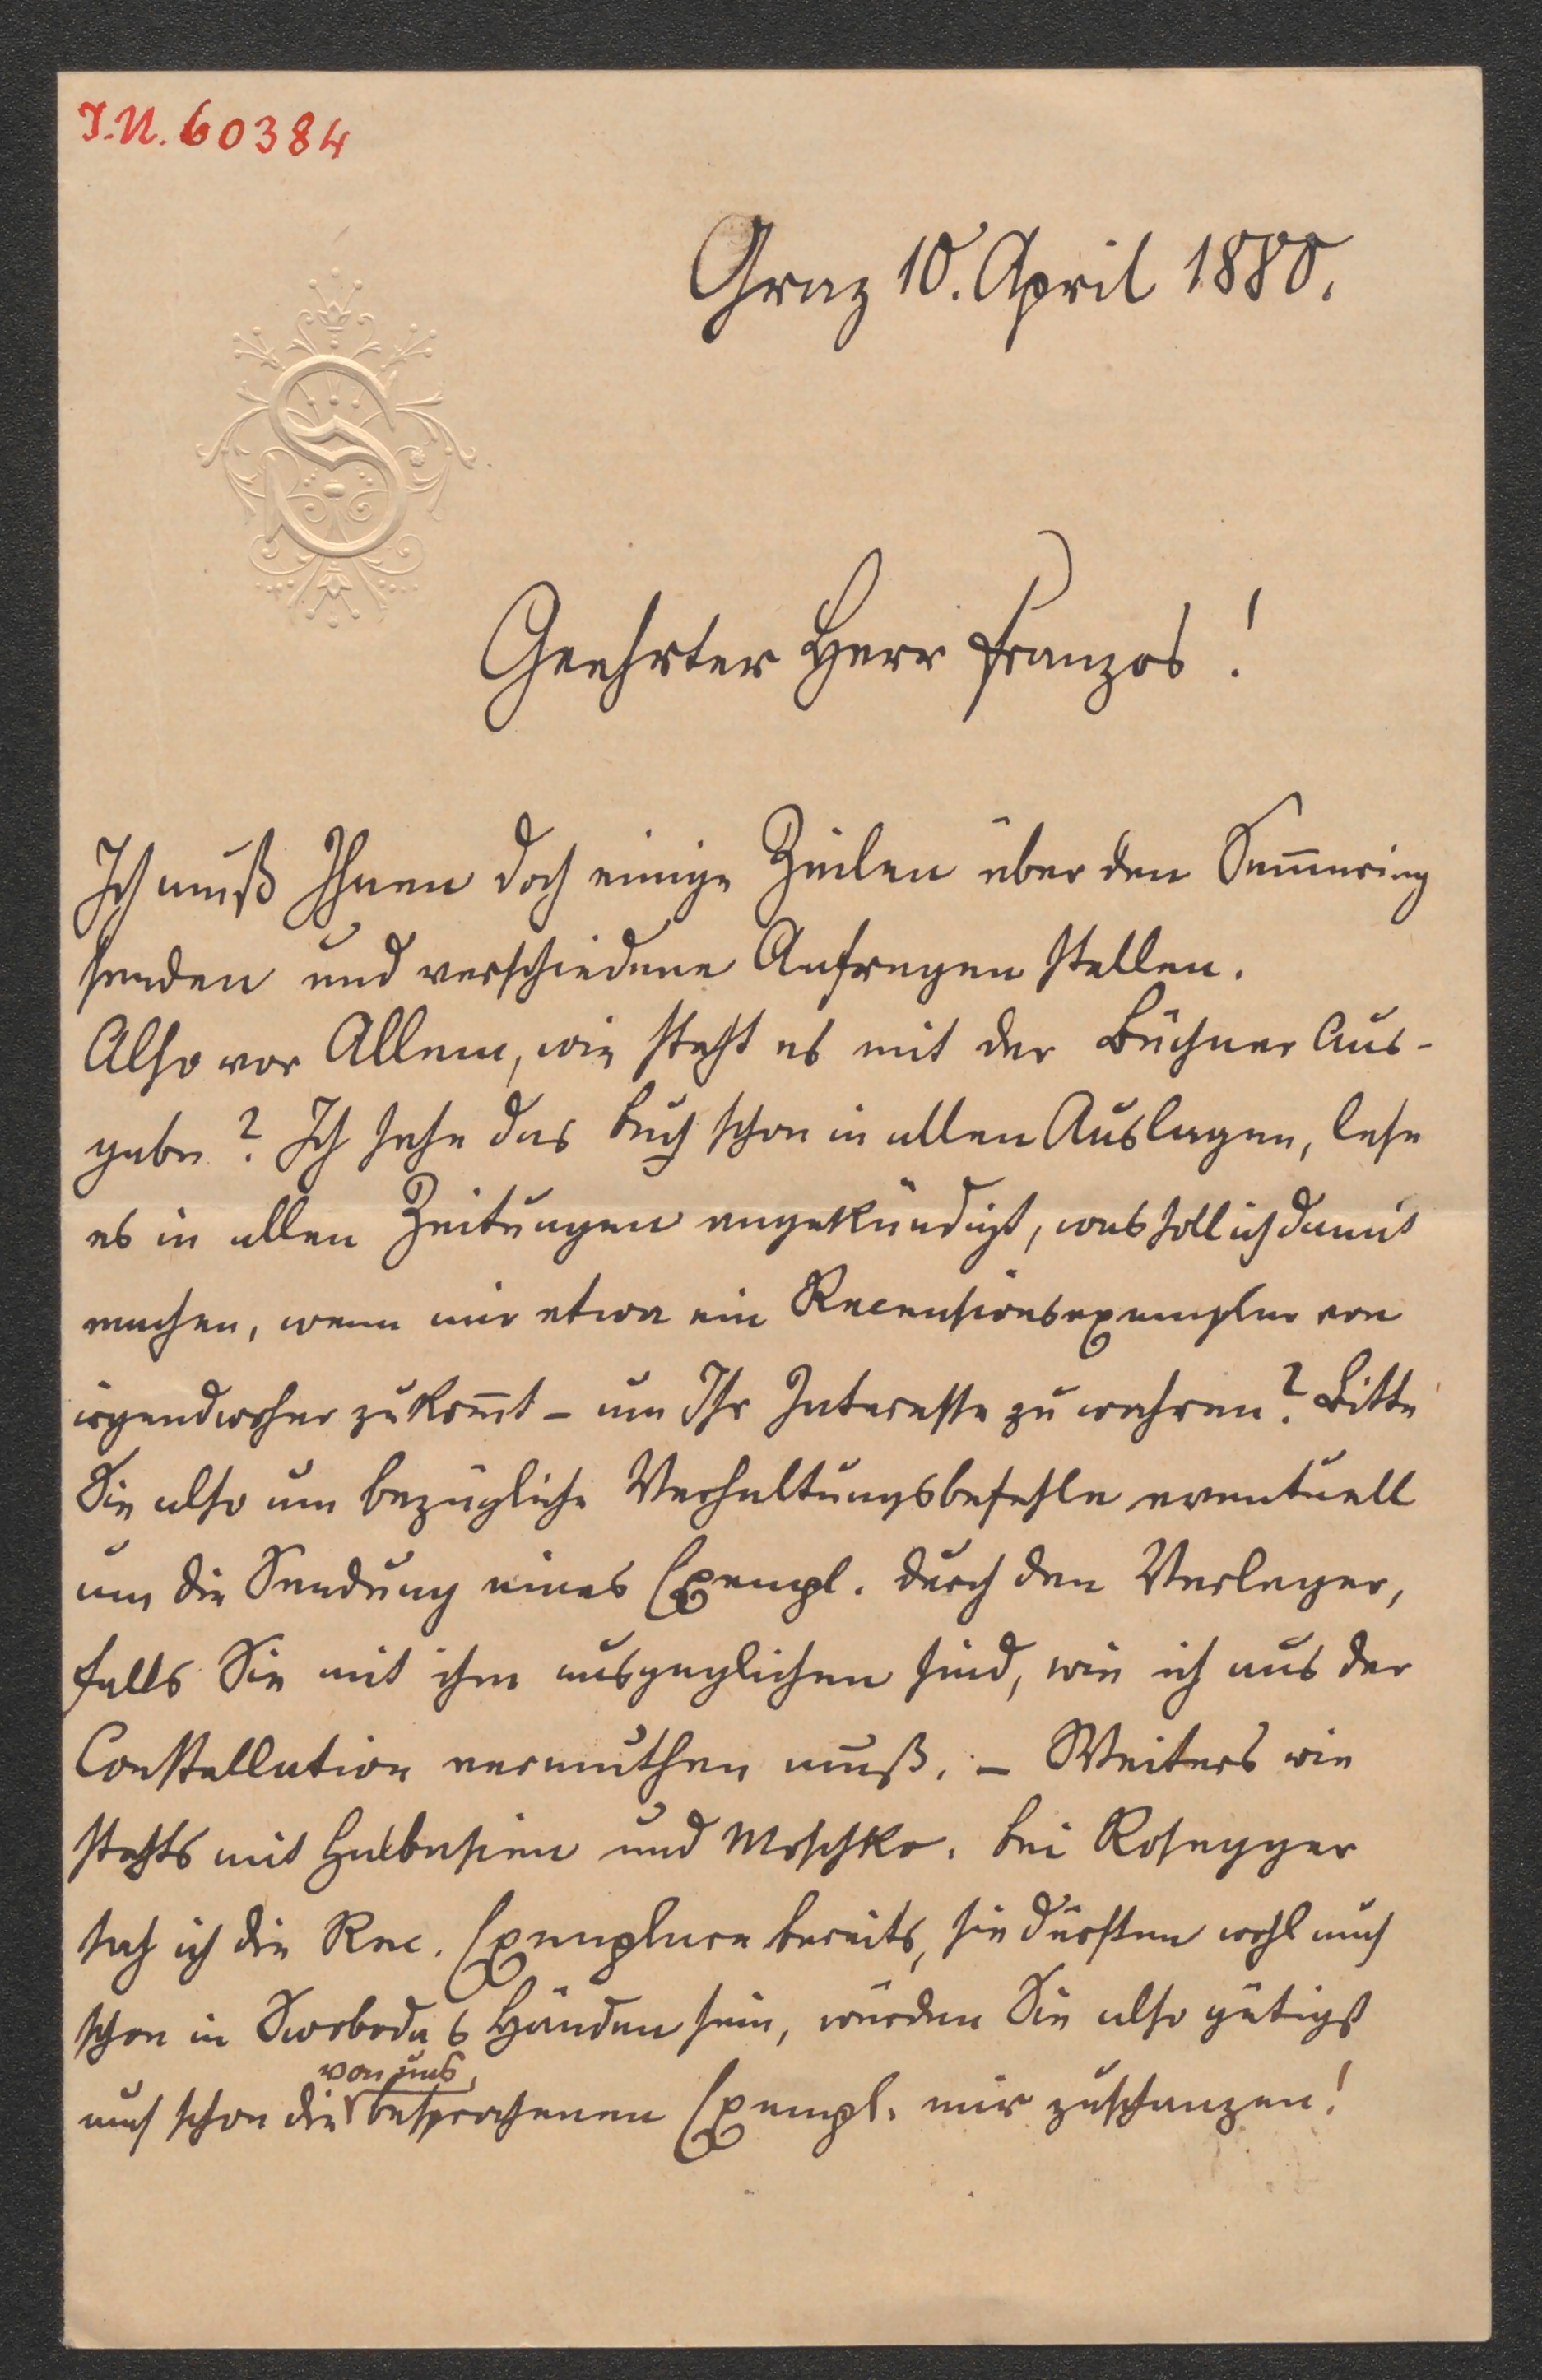 I.N. 60384
Graz 10. April 1880.
S
Geehrter Herr Franzos!
Ich muß Ihnen doch einige Zeilen über den Semmering
senden und verschiedene Anfragen stellen.
Also vor Allem, wie steht es mit der Büchner Aus-
gabe? Ich sehe das Buch schon in allen Auslagen, lese
es in allen Zeitungen angekündigt, was soll ich damit
machen, wenn mir etwa ein Recensionsexemplar von
irgendwoher zukommt – um Ihr Interesse zu wahren? Bitte
Sie also um bezügliche Verhaltungsbefehle eventuell
um die Sendung eines Exempl. durch den Verleger,
falls Sie mit ihm ausgeglichen sind, wie ich aus der
Constellation vermuthen muß. – Weiters wie
stehts mit Halbasien und Moschko. Bei Rosegger
sah ich die Rec. Exemplare bereits, sie dürften wohl auch
schon in Swoboda's Händen sein, würden Sie also gütigst
von uns
auch schon die besprochenen Exempl. mir zuschanzen!